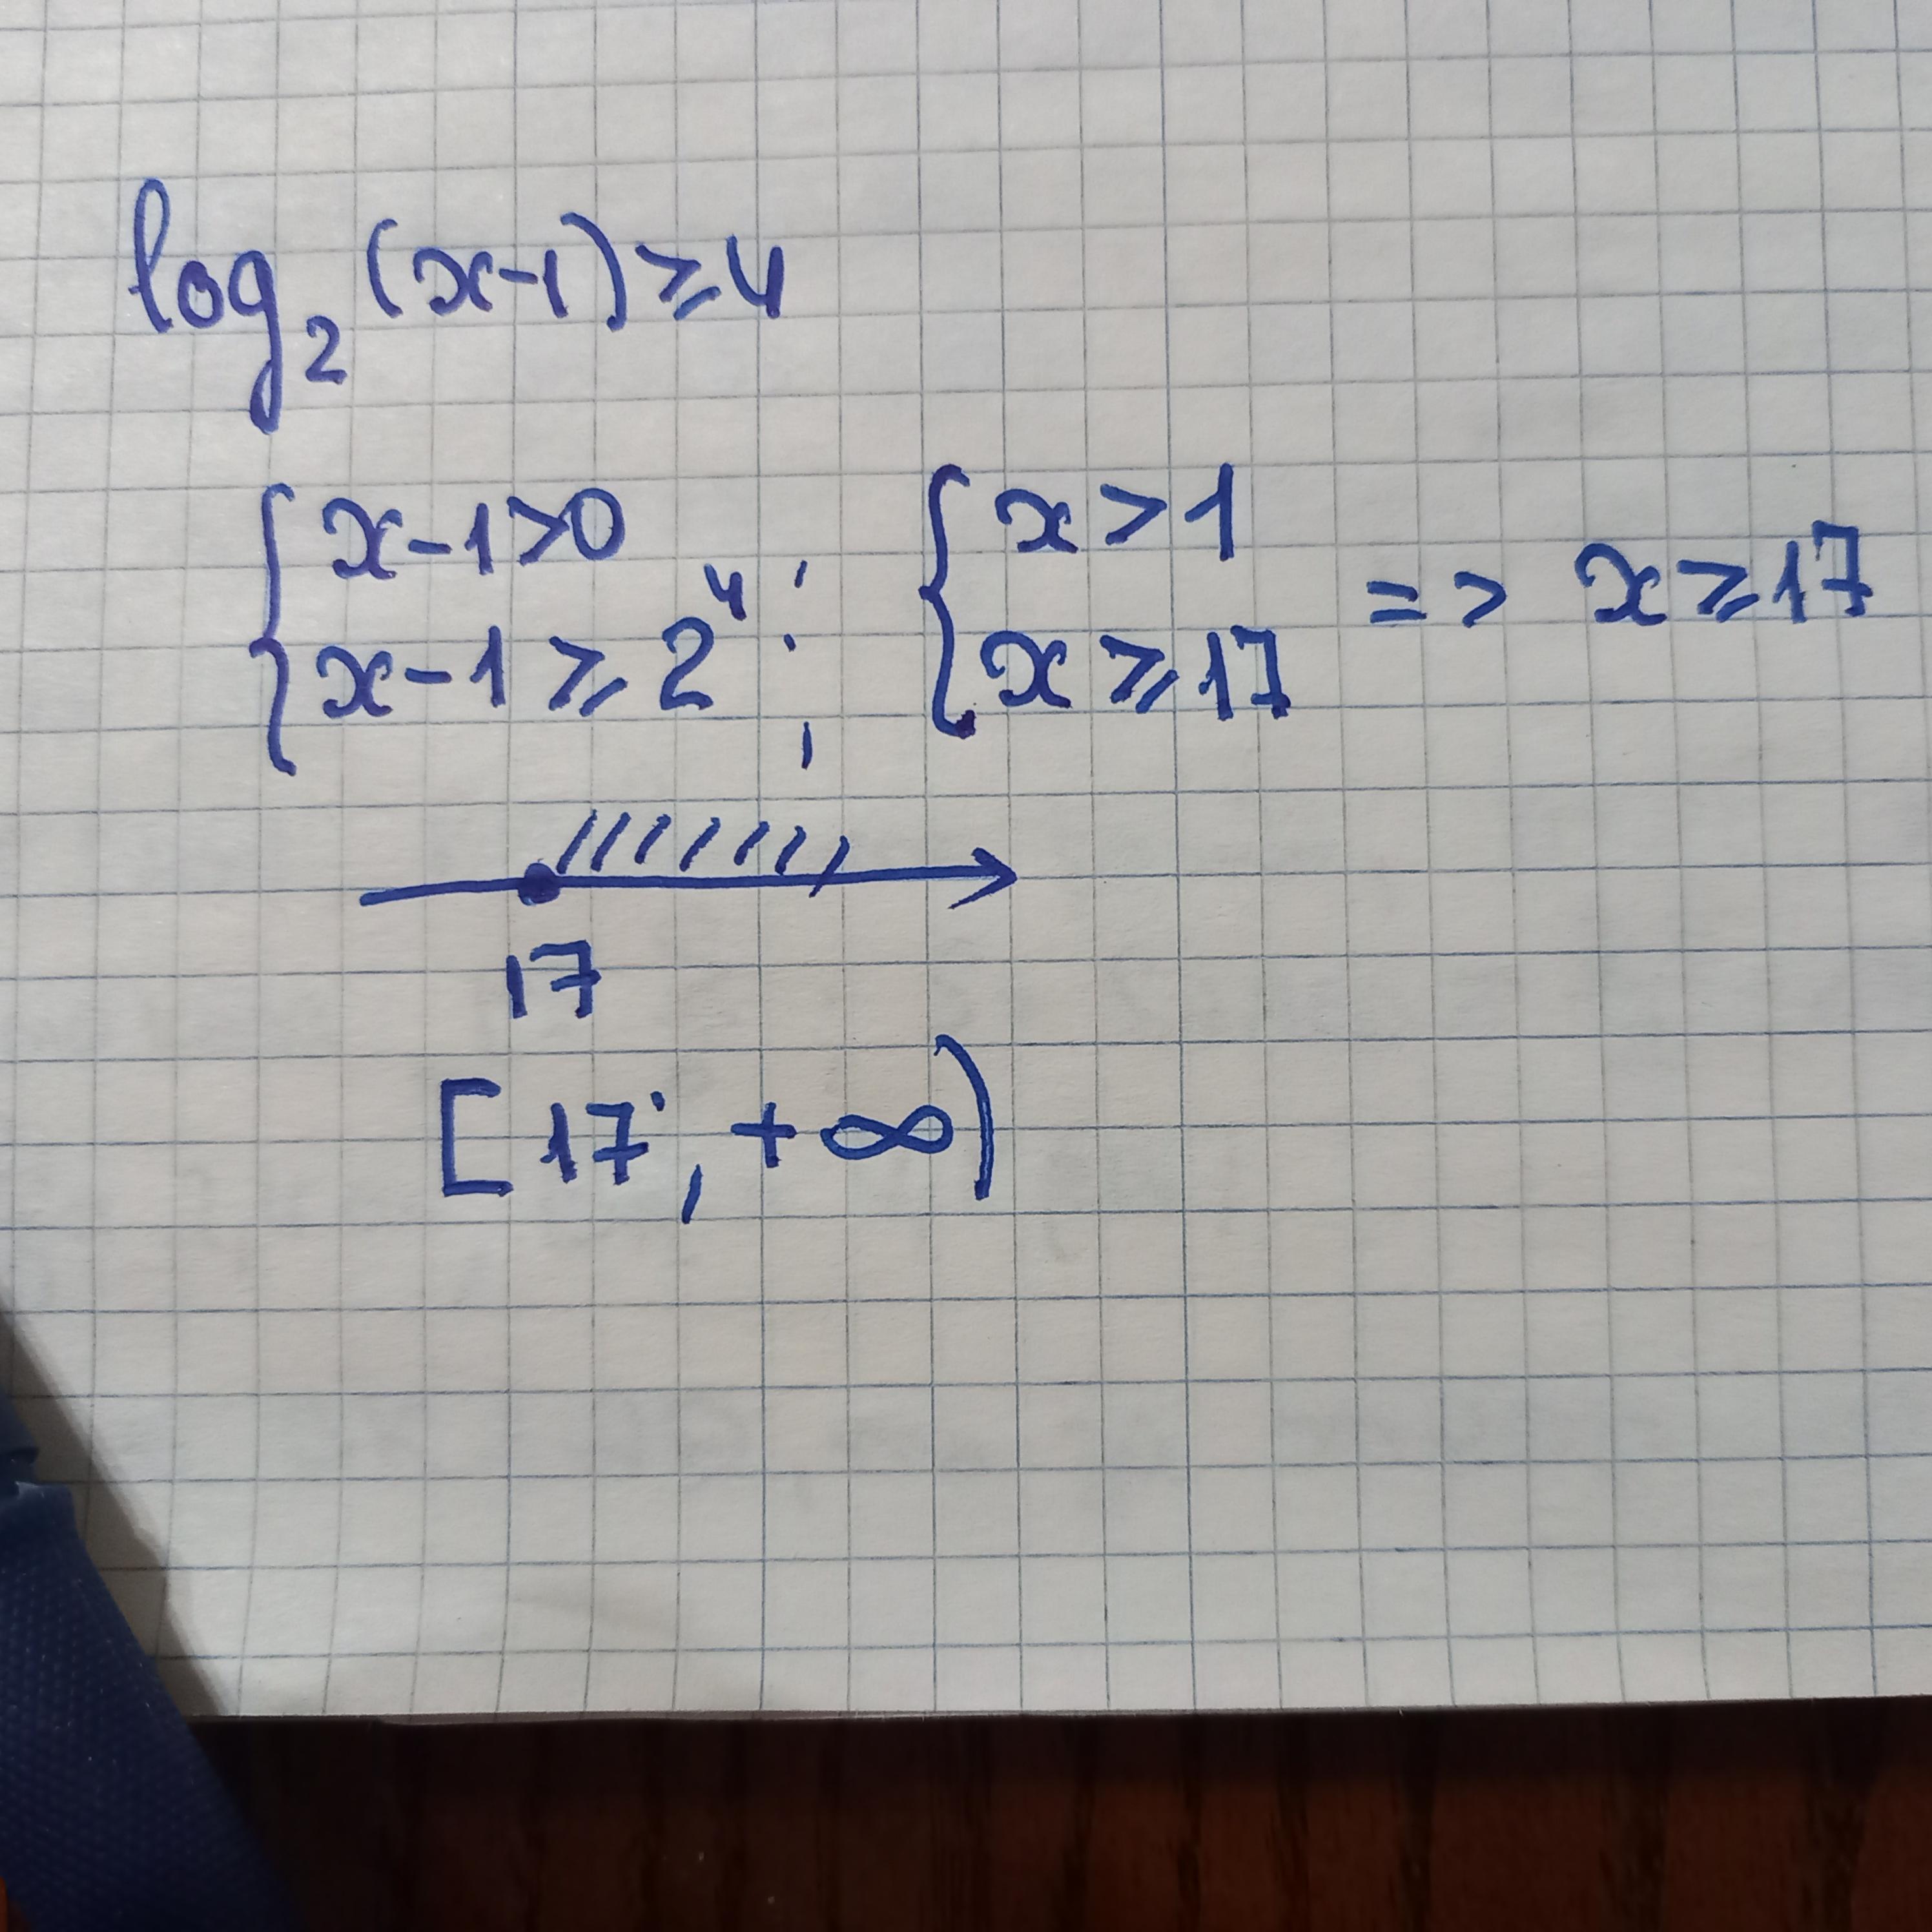 log₂(x-1)≥4
{x-1>0 ; {x>1
{x-1≥2⁴ ; {x≥17 => x≥17
17
[17; +∞)